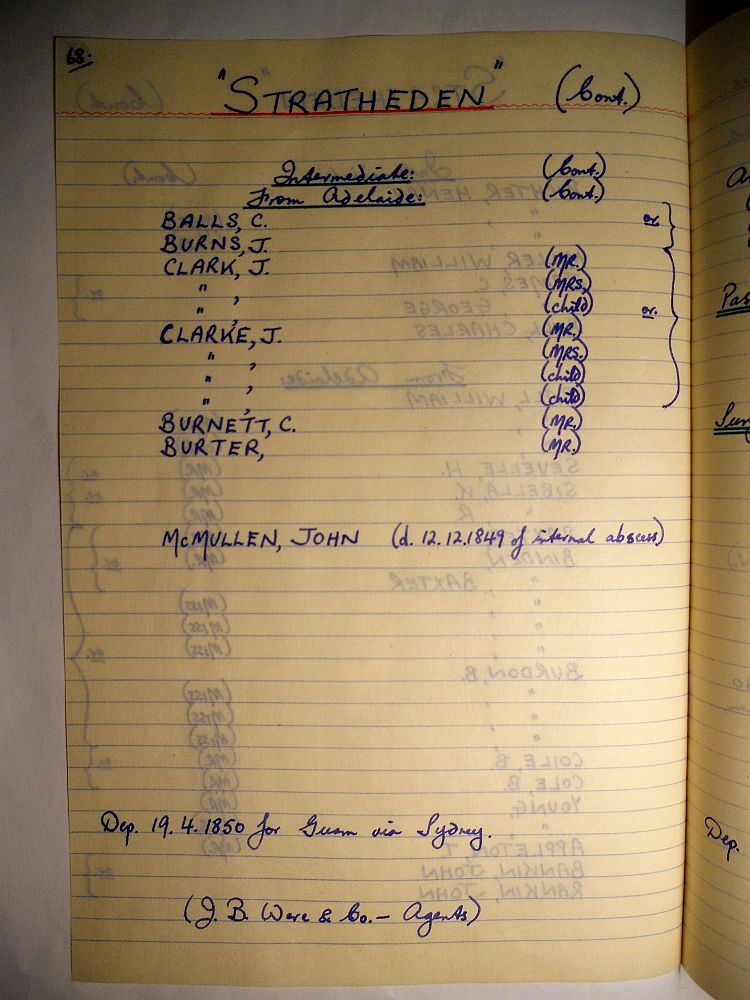 68.
"STRATHEDEN" (Cont.)
Intermediate: (Cont.)
From Adelaide: (Cont.)
BALLS, C. or.
BURNS, J.
CLARK, J. (MR.)
" , (MRS.)
" , (child) or.
CLARKE, J. (MR.)
" , (MRS.)
" , (child)
" , (child)
BURNETT, C. (MR.)
BURTER, (MR.)
McMULLEN, JOHN (d. 12.12.1849 of internal abscess)
Dep. 19.4.1850 for Guam via Sydney.
(J. B. Were & Co. - Agents)
Pas
Dep.